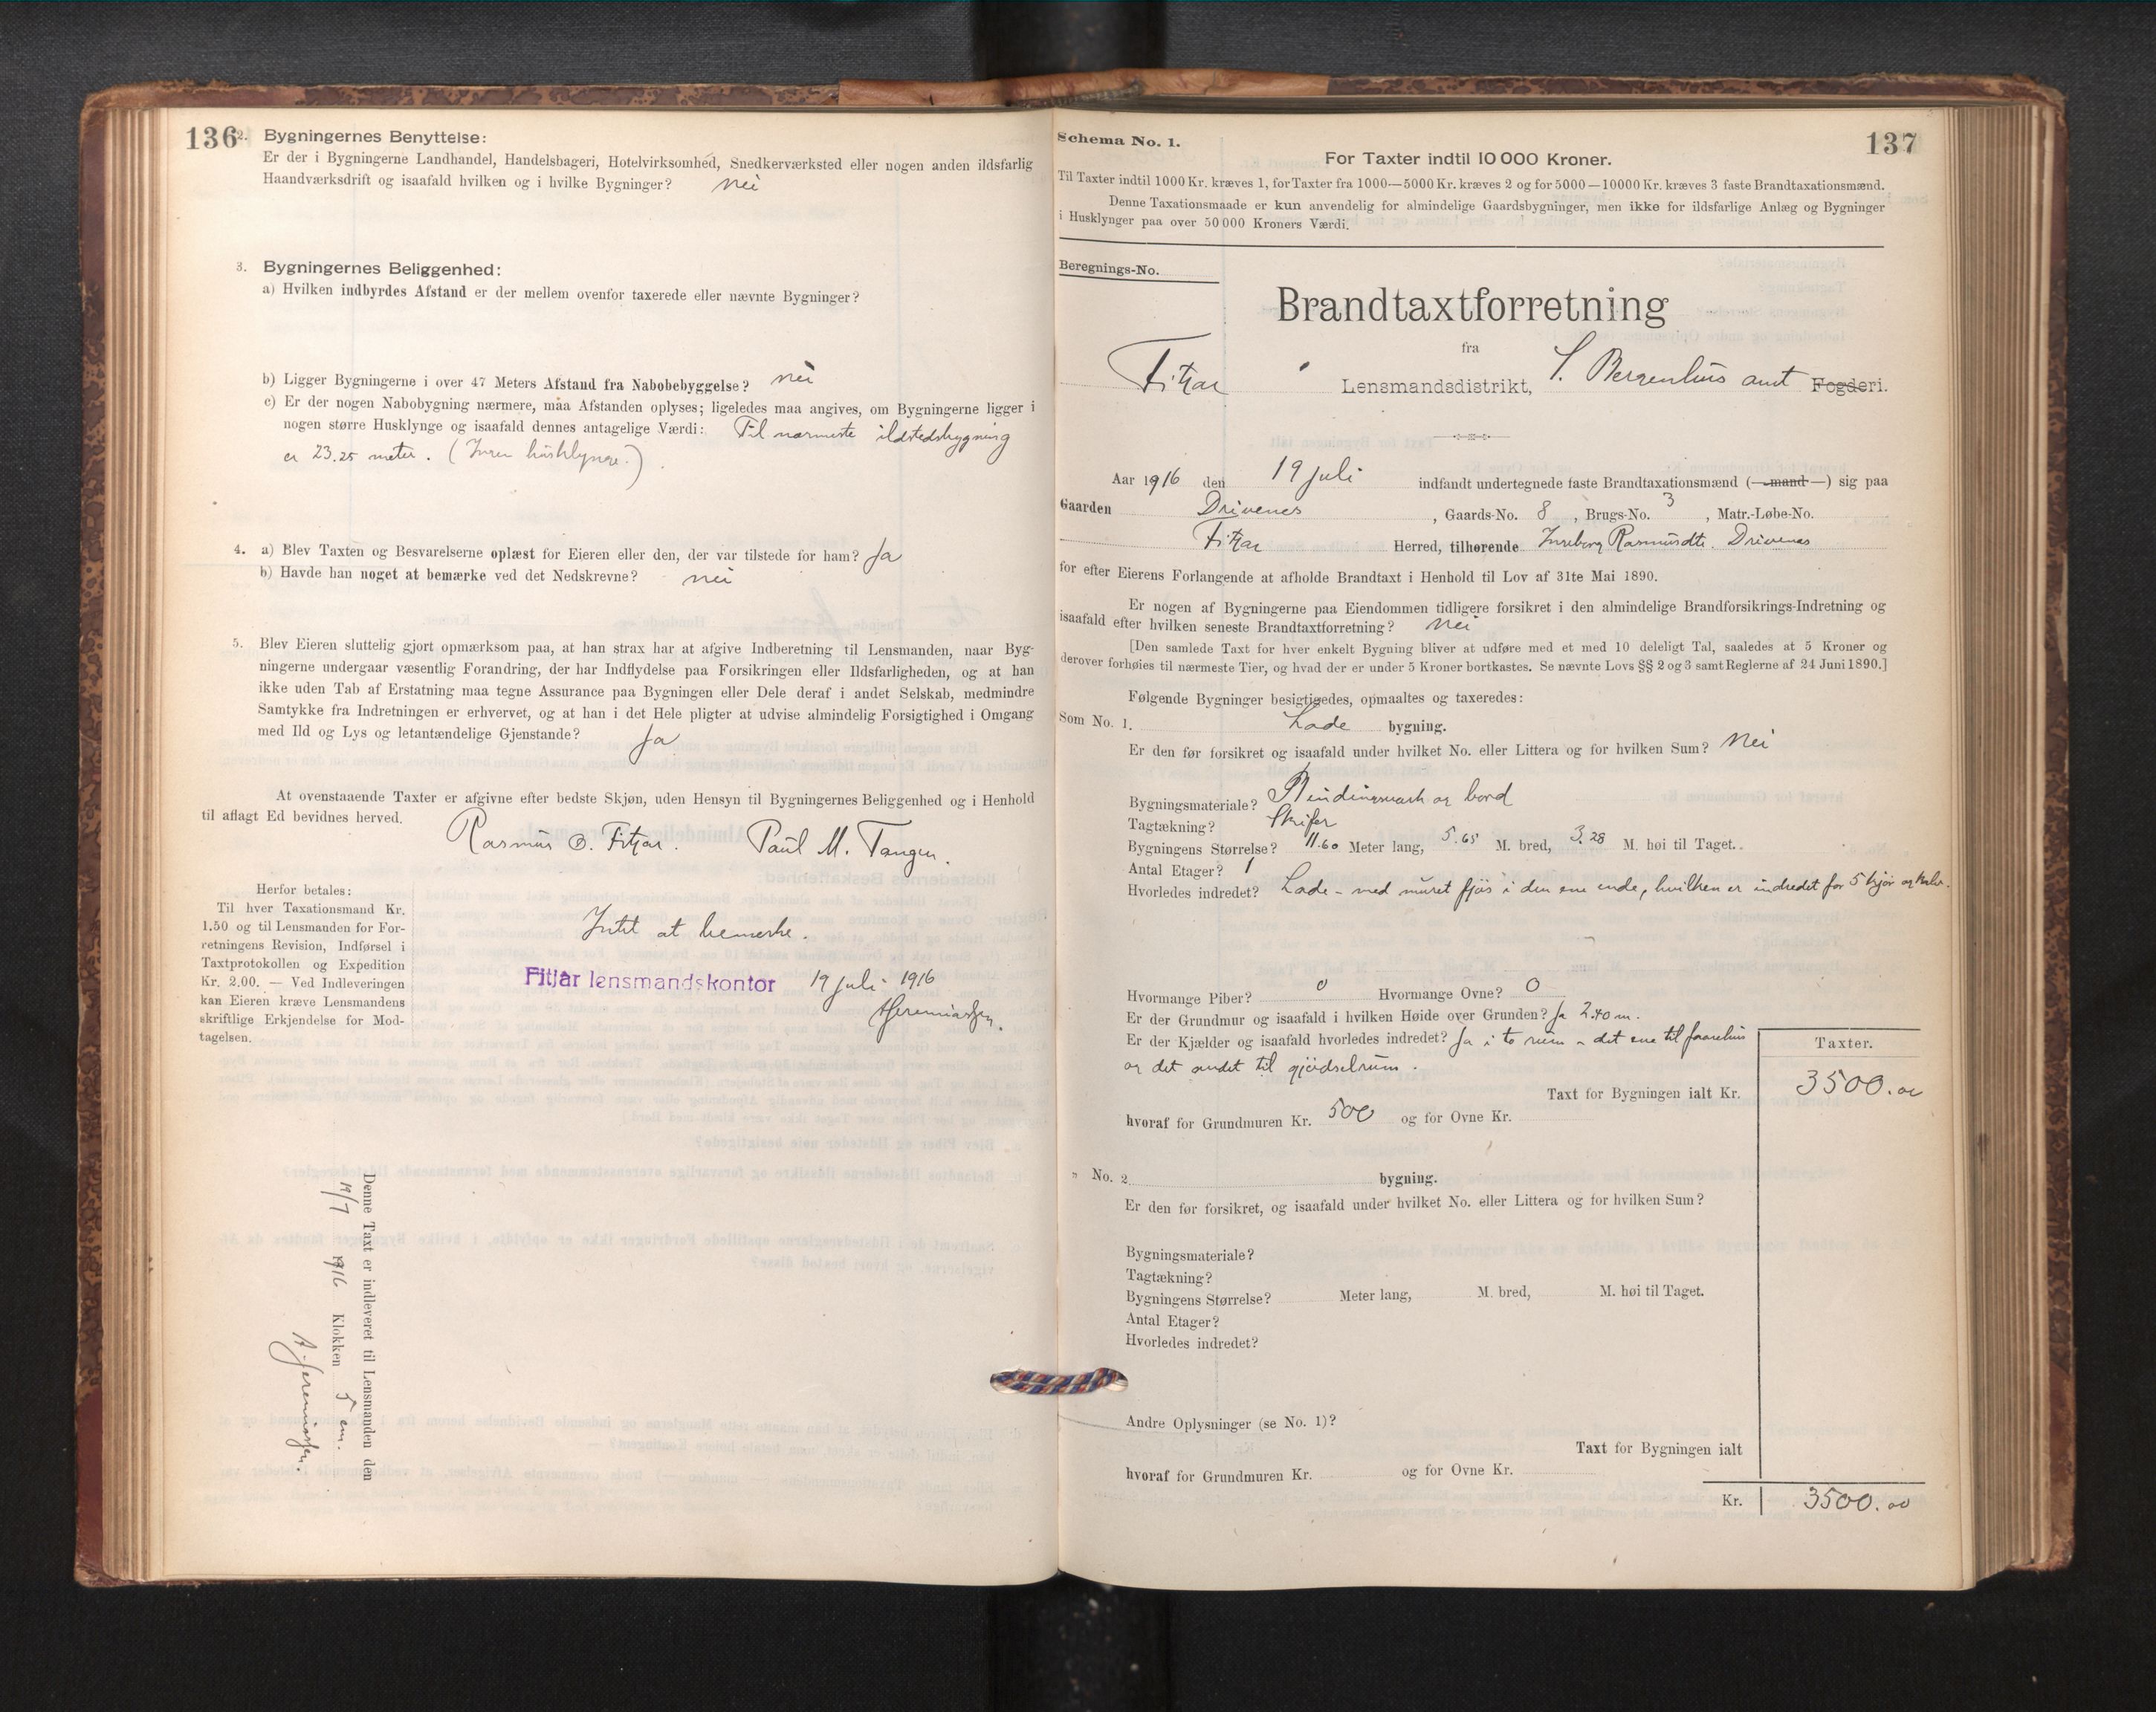 136
2. Bygningernes Benyttelse:
Er der i Bygningerne Landhandel, Handelsbageri, Hotelvirksomhed, Snedkerværksted eller nogen anden ildsfarlig
Haandværksdrift og isaafald hvilken og i hvilke Bygninger? nei
3. Bygningernes Beliggenhed:
a) Hvilken indbyrdes Afstand er der mellem ovenfor taxerede eller nævnte Bygninger?
b) Ligger Bygningerne i over 47 Meters Afstand fra Nabobebyggelse? nei
c) Er der nogen Nabobygning nærmere, maa Afstanden oplyses; ligeledes maa angives, om Bygningerne ligger i
nogen større Husklynge og isaafald dennes antagelige Værdi: Til nærmeste ildstedsbygning
er 23.25 meter. (Ingen husklynge.)
4. a) Blev Taxten og Besvarelserne oplæst for Eieren eller den, der var tilstede for ham? Ja
b) Havde han noget at bemærke ved det Nedskrevne? nei
5. Blev Eieren sluttelig gjort opmærksom paa, at han strax har at afgive Indberetning til Lensmanden, naar Byg-
ningerne undergaar væsentlig Forandring, der har Indflydelse paa Forsikringen eller Ildsfarligheden, og at han
ikke uden Tab af Erstatning maa tegne Assurance paa Bygningen eller Dele deraf i andet Selskab, medmindre
Samtykke fra Indretningen er erhvervet, og at han i det Hele pligter at udvise almindelig Forsigtighed i Omgang
med Ild og Lys og letantændelige Gjenstande? Ja
At ovenstaaende Taxter er afgivne efter bedste Skjøn, uden Hensyn til Bygningernes Beliggenhed og i Henhold
til aflagt Ed bevidnes herved.
Rasmus O. Fitjar. Paul M. Tangen.
Herfor betales:
Til hver Taxationsmand Kr.
1.50 og til Lensmanden for For-
retningens Revision, Indførsel i
Taxtprotokollen og Expedition
Kr. 2.00. — Ved Indleveringen
kan Eieren kræve Lensmandens
skriftlige Erkjendelse for Mod-
tagelsen.
Intet at bemerke.
Fitjar lensmandskontor 19 juli 1916
AJeremiassen.
Denne Taxt er indleveret til Lensmanden den
19/7 1916 Klokken 5 em.
A. Jeremiassen.
137
Schema No. 1.
For Taxter indtil 10 000 Kroner.
Til Taxter indtil 1000 Kr. kræves 1, for Taxter fra 1000—5000 Kr. kræves 2 og for 5000—10000 Kr. kræves 3 faste Brandtaxationsmænd.
Denne Taxationsmaade er kun anvendelig for almindelige Gaardsbygninger, men ikke for ildsfarlige Anlæg og Bygninger
i Husklynger paa over 50 000 Kroners Værdi.
Beregnings-No.
Brandtaxtforretning
fra
Fitjar Lensmandsdistrikt, S. Bergenhus amt Fogderi.
Aar 1916 den 19 juli indfandt undertegnede faste Brandtaxationsmænd (—mand—) sig paa
Gaarden Drivenes, Gaards-No. 8, Brugs-No. 3, Matr.-Løbe-No.
Fitjar Herred, tilhørende Ingeborg Rasmusdtr. Drivenes
for efter Eierens Forlangende at afholde Brandtaxt i Henhold til Lov af 31te Mai 1890.
Er nogen af Bygningerne paa Eiendommen tidligere forsikret i den almindelige Brandforsikrings-Indretning og
isaafald efter hvilken seneste Brandtaxtforretning? Nei
[Den samlede Taxt for hver enkelt Bygning bliver at udføre med et med 10 deleligt Tal, saaledes at 5 Kroner og
derover forhøies til nærmeste Tier, og hvad der er under 5 Kroner bortkastes. Se nævnte Lovs §§ 2 og 3 samt Reglerne af 24 Juni 1890.]
Følgende Bygninger besigtigedes, opmaaltes og taxeredes:
Som No. 1. Lade bygning.
Er den før forsikret og isaafald under hvilket No. eller Littera og for hvilken Sum? Nei
Bygningsmateriale? Bindingsværk og bord
Tagtækning? Skifer
Bygningens Størrelse? 11.60 Meter lang, 5.65 M. bred, 3.28 M. høi til Taget.
Antal Etager? 1
Hvorledes indredet? Lade - med muret fjøs i den ene ende, hvilken er indredet for 5 kjør og kalv.
Hvormange Piber? 0 Hvormange Ovne? 0
Er der Grundmur og isaafald i hvilken Høide over Grunden? Ja 2.40 m.
Er der Kjælder og isaafald hvorledes indredet? Ja i to rum - det ene til faarehus
og det andet til gjødselrum.
Taxter.
Taxt for Bygningen ialt Kr. 3500.00
hvoraf for Grundmuren Kr. 500 og for Ovne Kr.
" No. 2 bygning.
Er den før forsikret, og isaafald under hvilket No. eller Littera og for hvilken Sum?
Bygningsmateriale?
Tagtækning?
Bygningens Størrelse? Meter lang, M. bred, M. høi til Taget.
Antal Etager?
Hvorledes indredet?
Andre Oplysninger (se No. 1)?
Taxt for Bygningen ialt
hvoraf for Grundmuren Kr. og for Ovne Kr.
Kr. 3500.00